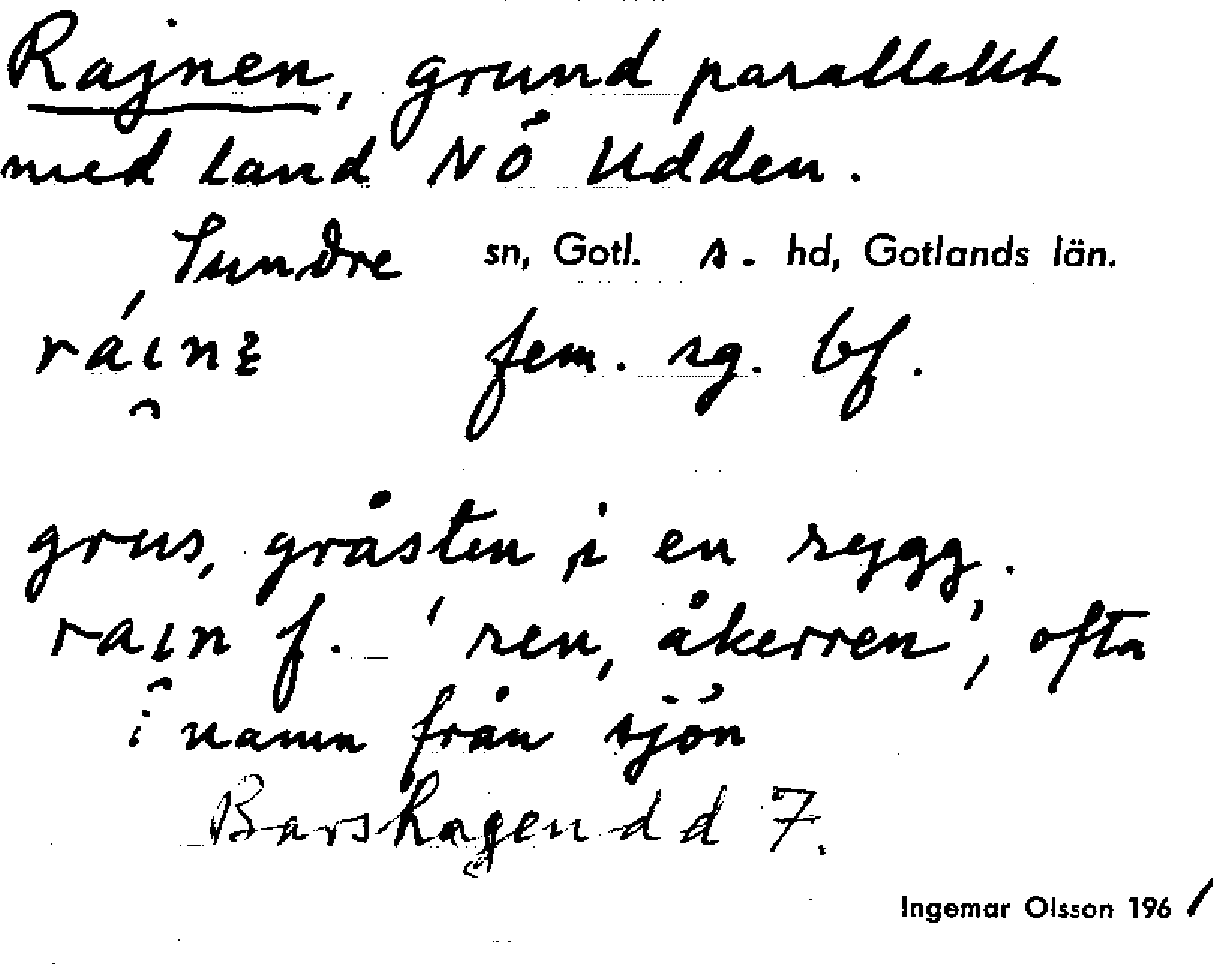 Rajnen, grund parallellt
med land NÖ Udden.
Sundre sn, Gotl. s. hd, Gotlands län.
fem. sg. bf.
grus, gråsten i en rygg.
raın f. 'ren, åkerren', ofta
i namn från sjön
Barshagen d d 7.
Ingemar Olsson 1961